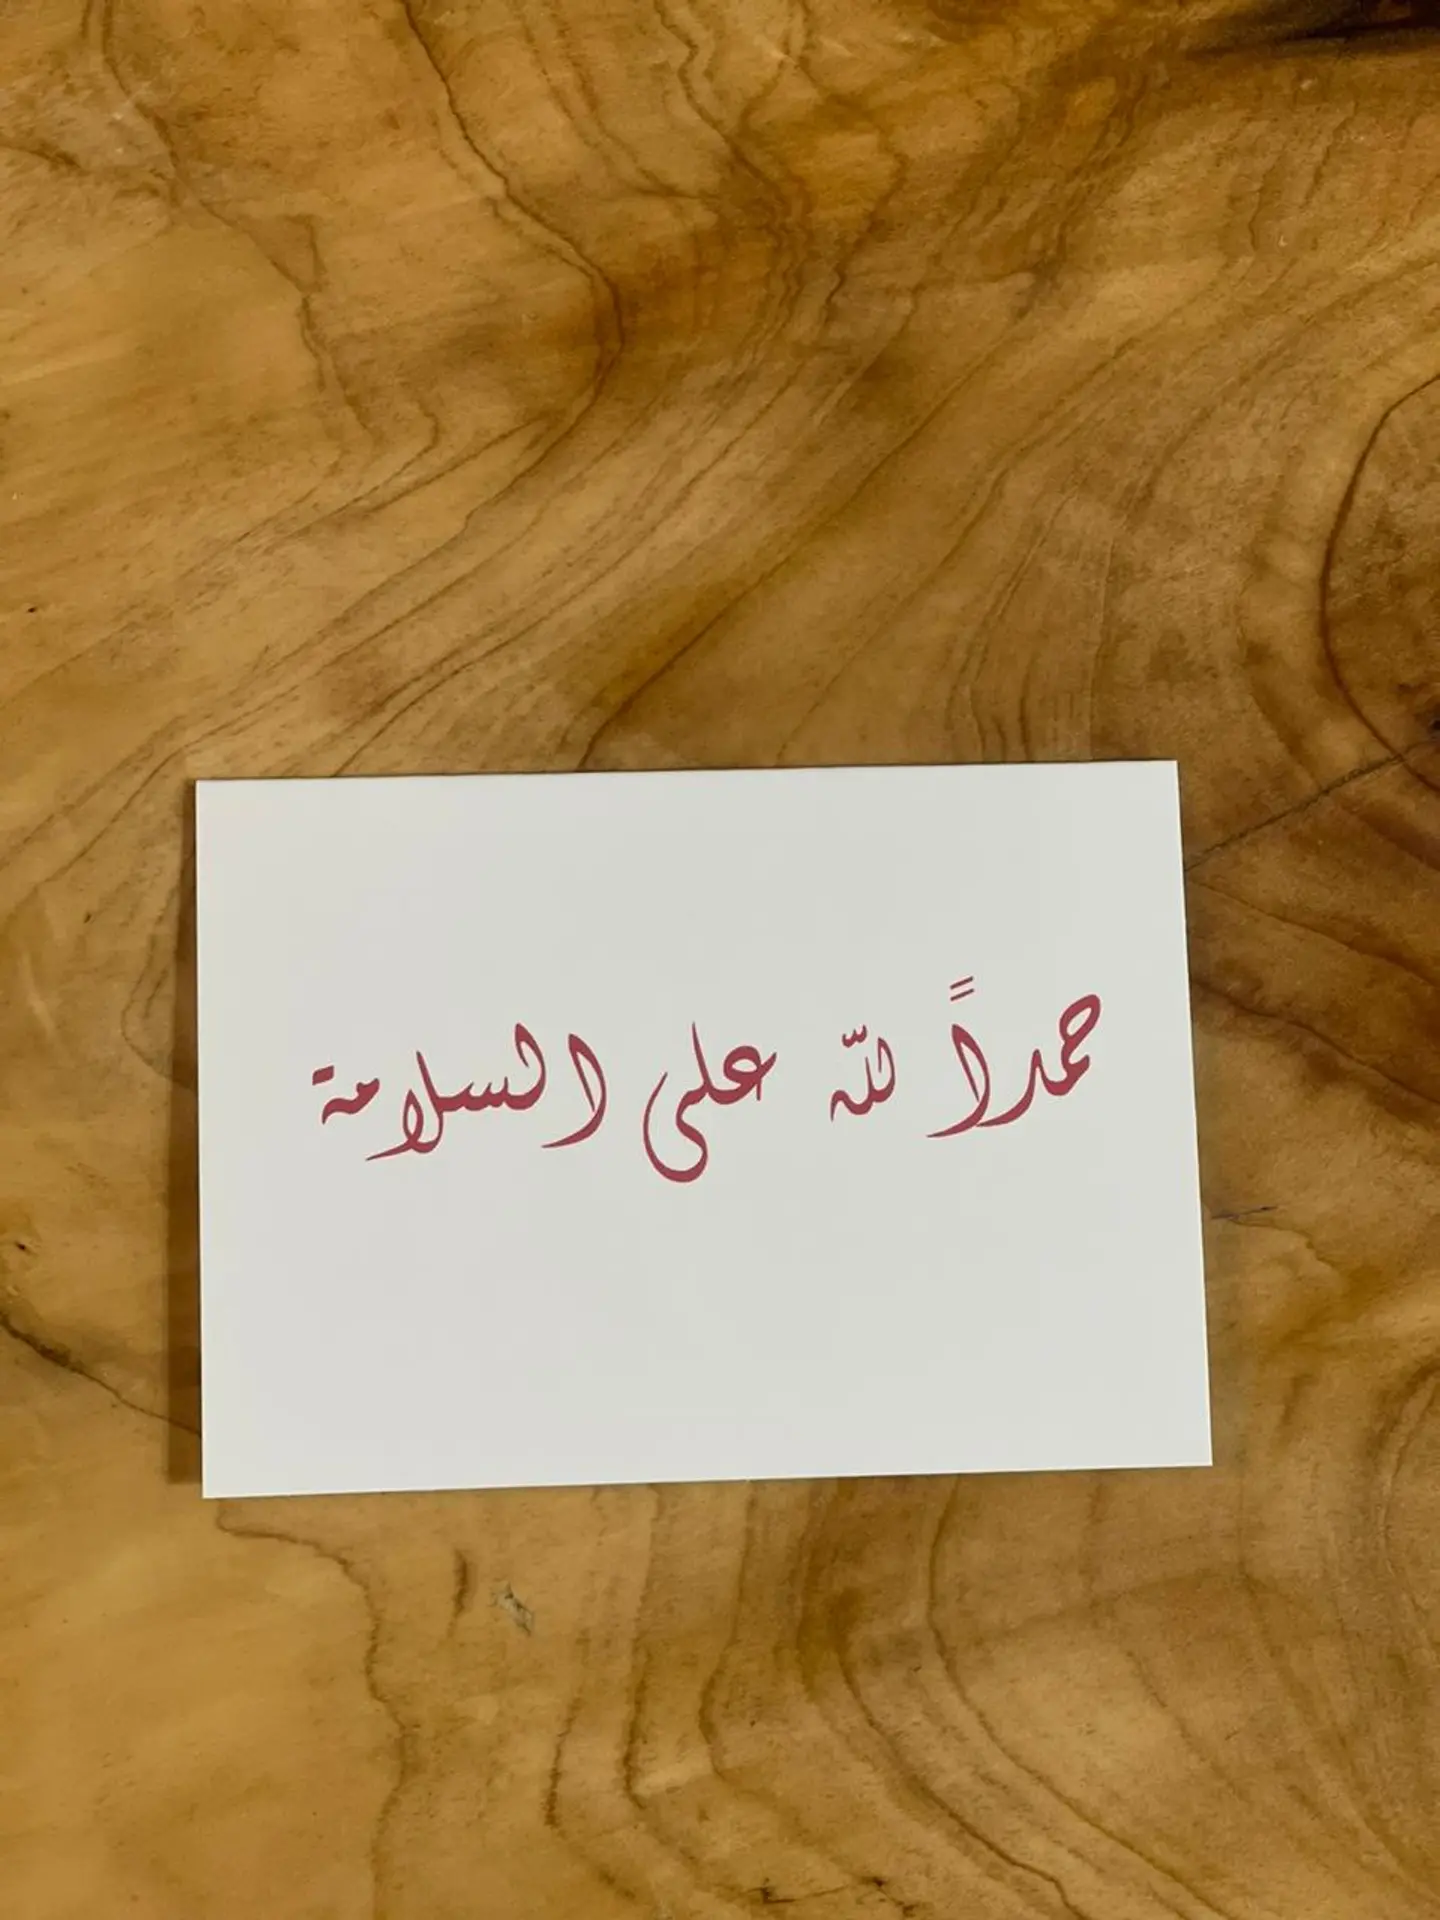 حمداً للّه على السلامة